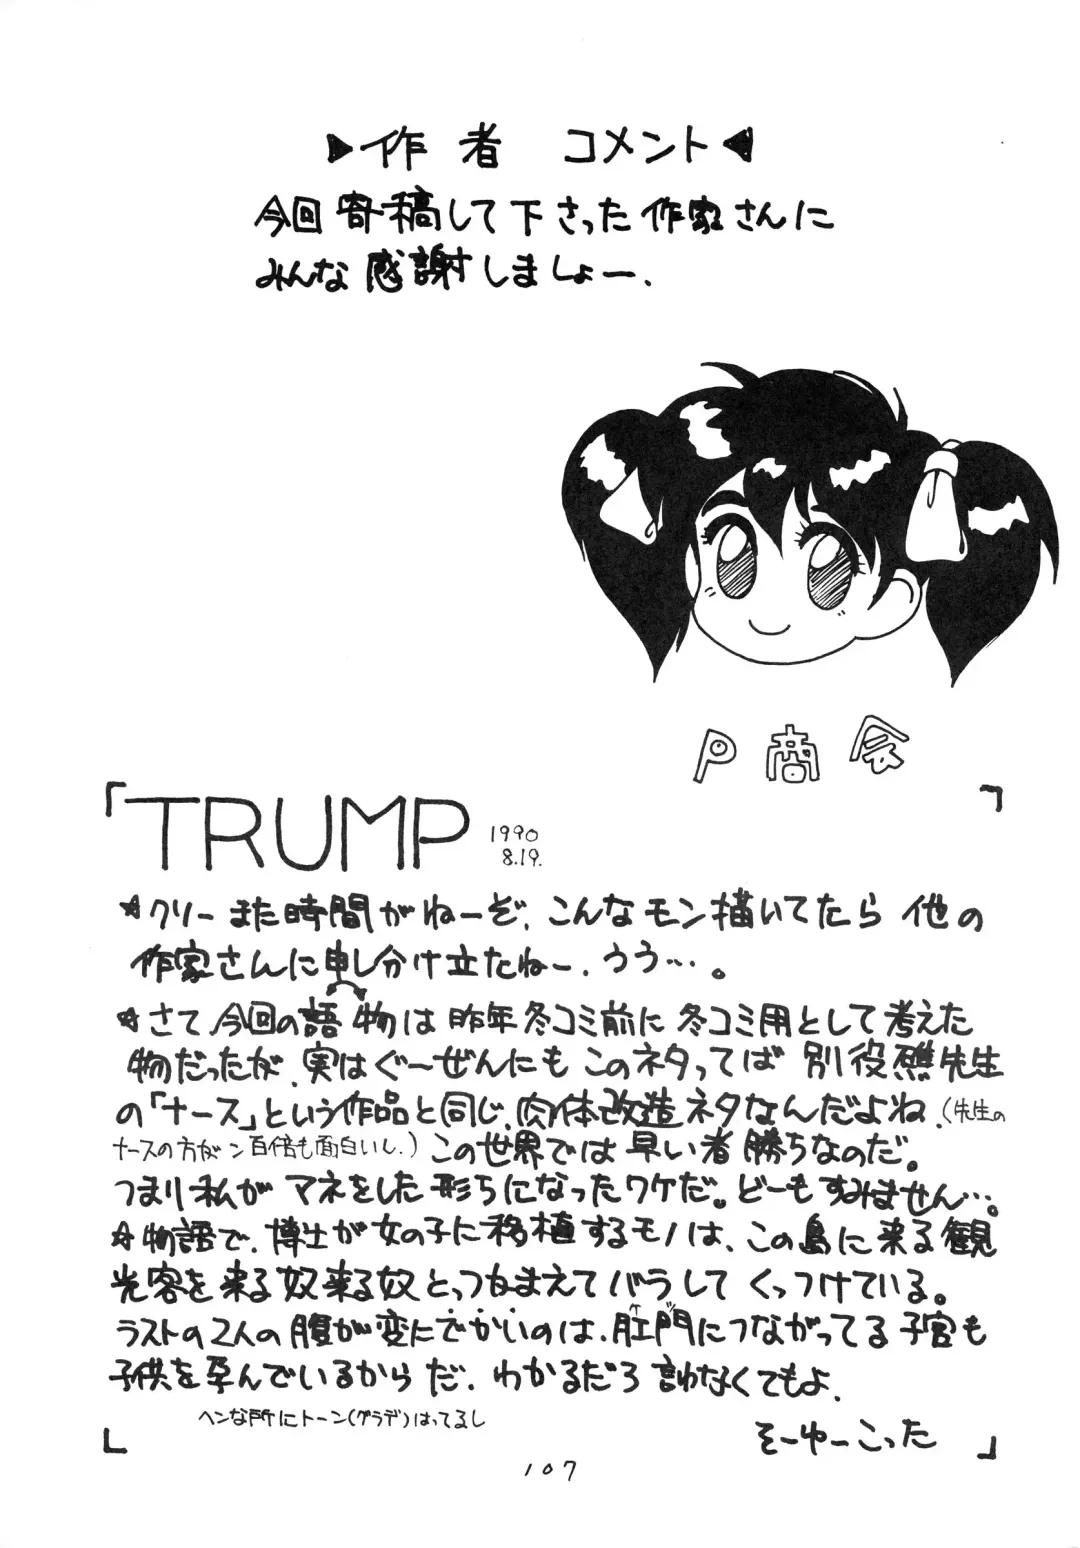 ▶作者 コメント◀
今回寄稿して下さった作家さんに
みんな感謝しましょー.
P商会
「TRUMP 1990 8.19.
☆クソーまた時間がねーぞ、こんなモン描いてたら他の
作家さんに申し分け立たねー、うう…。
☆さて今回の語物は昨年冬コミ前に冬コミ用として考えた
物だったが、実はぐーぜんにもこのネタってば別役礁先生
の「ナース」という作品と同じ、肉体改造ネタなんだよね.(先生の
ナースの方がン百倍も面白いし.)この世界では早い者勝ちなのだ。
つまり私がマネをした形ちになったワケだ。どーもすみません…。
☆物語で、博士が女の子に移植するモノは、この島に来る観
光客を来る奴来る奴とっつかまえてバラしてくっつけている。
ラストの2人の腹が変にでかいのは、肛門につながってる子宮も
子供を孕んでいるからだ、わかるだろ 訳なくてもよ.
ヘンな所にトーン(グラデ)はってるし
そーゆーこった 」
107